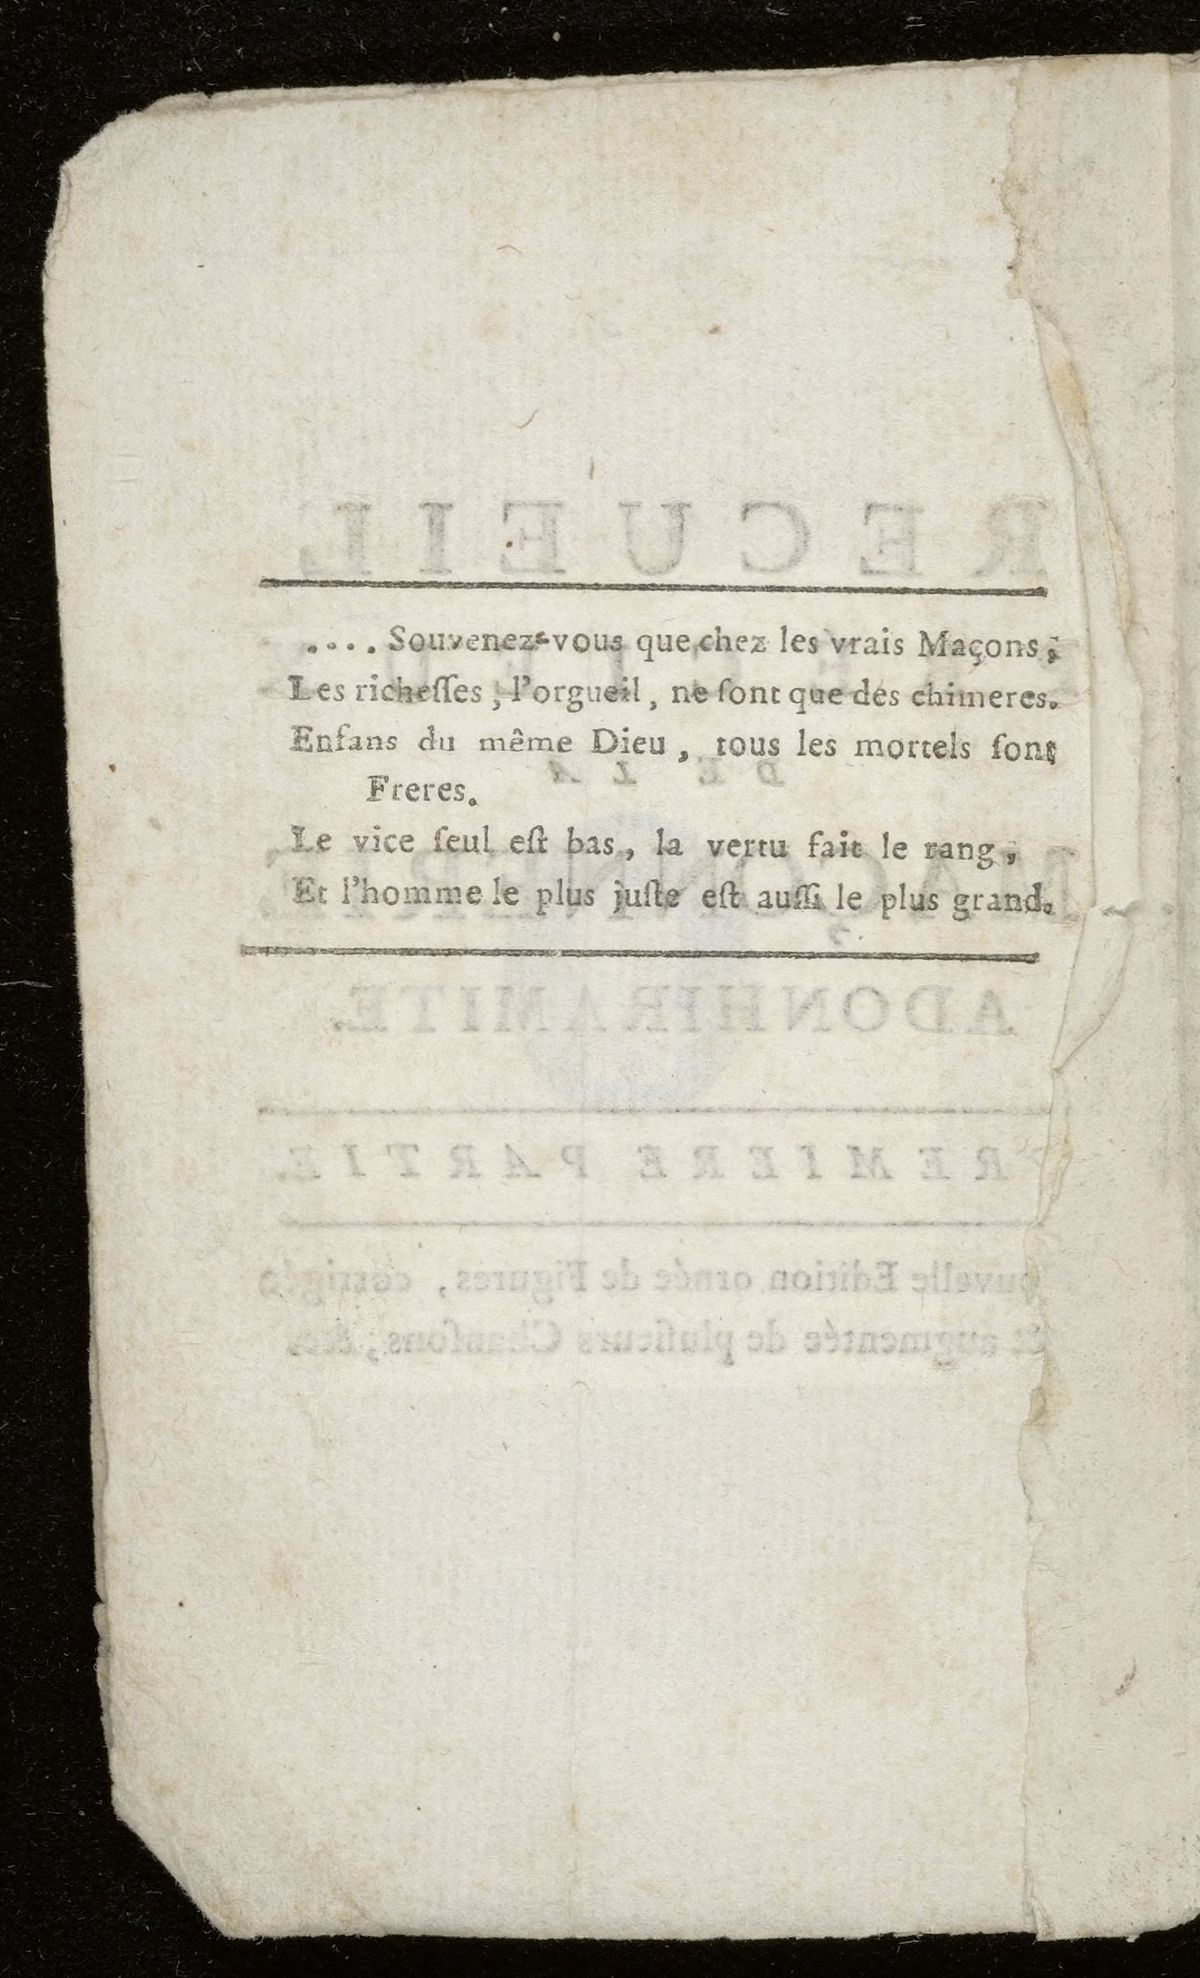 .... Souvenez-vous que chez les vrais Maçons,
Les richeſſes, l'orgueil, ne ſont que des chimeres.
Enfans du même Dieu, tous les mortels ſont
Freres.
Le vice ſeul eſt bas, la vertu fait le rang,
Et l'homme le plus juſte eſt auſſi le plus grand.